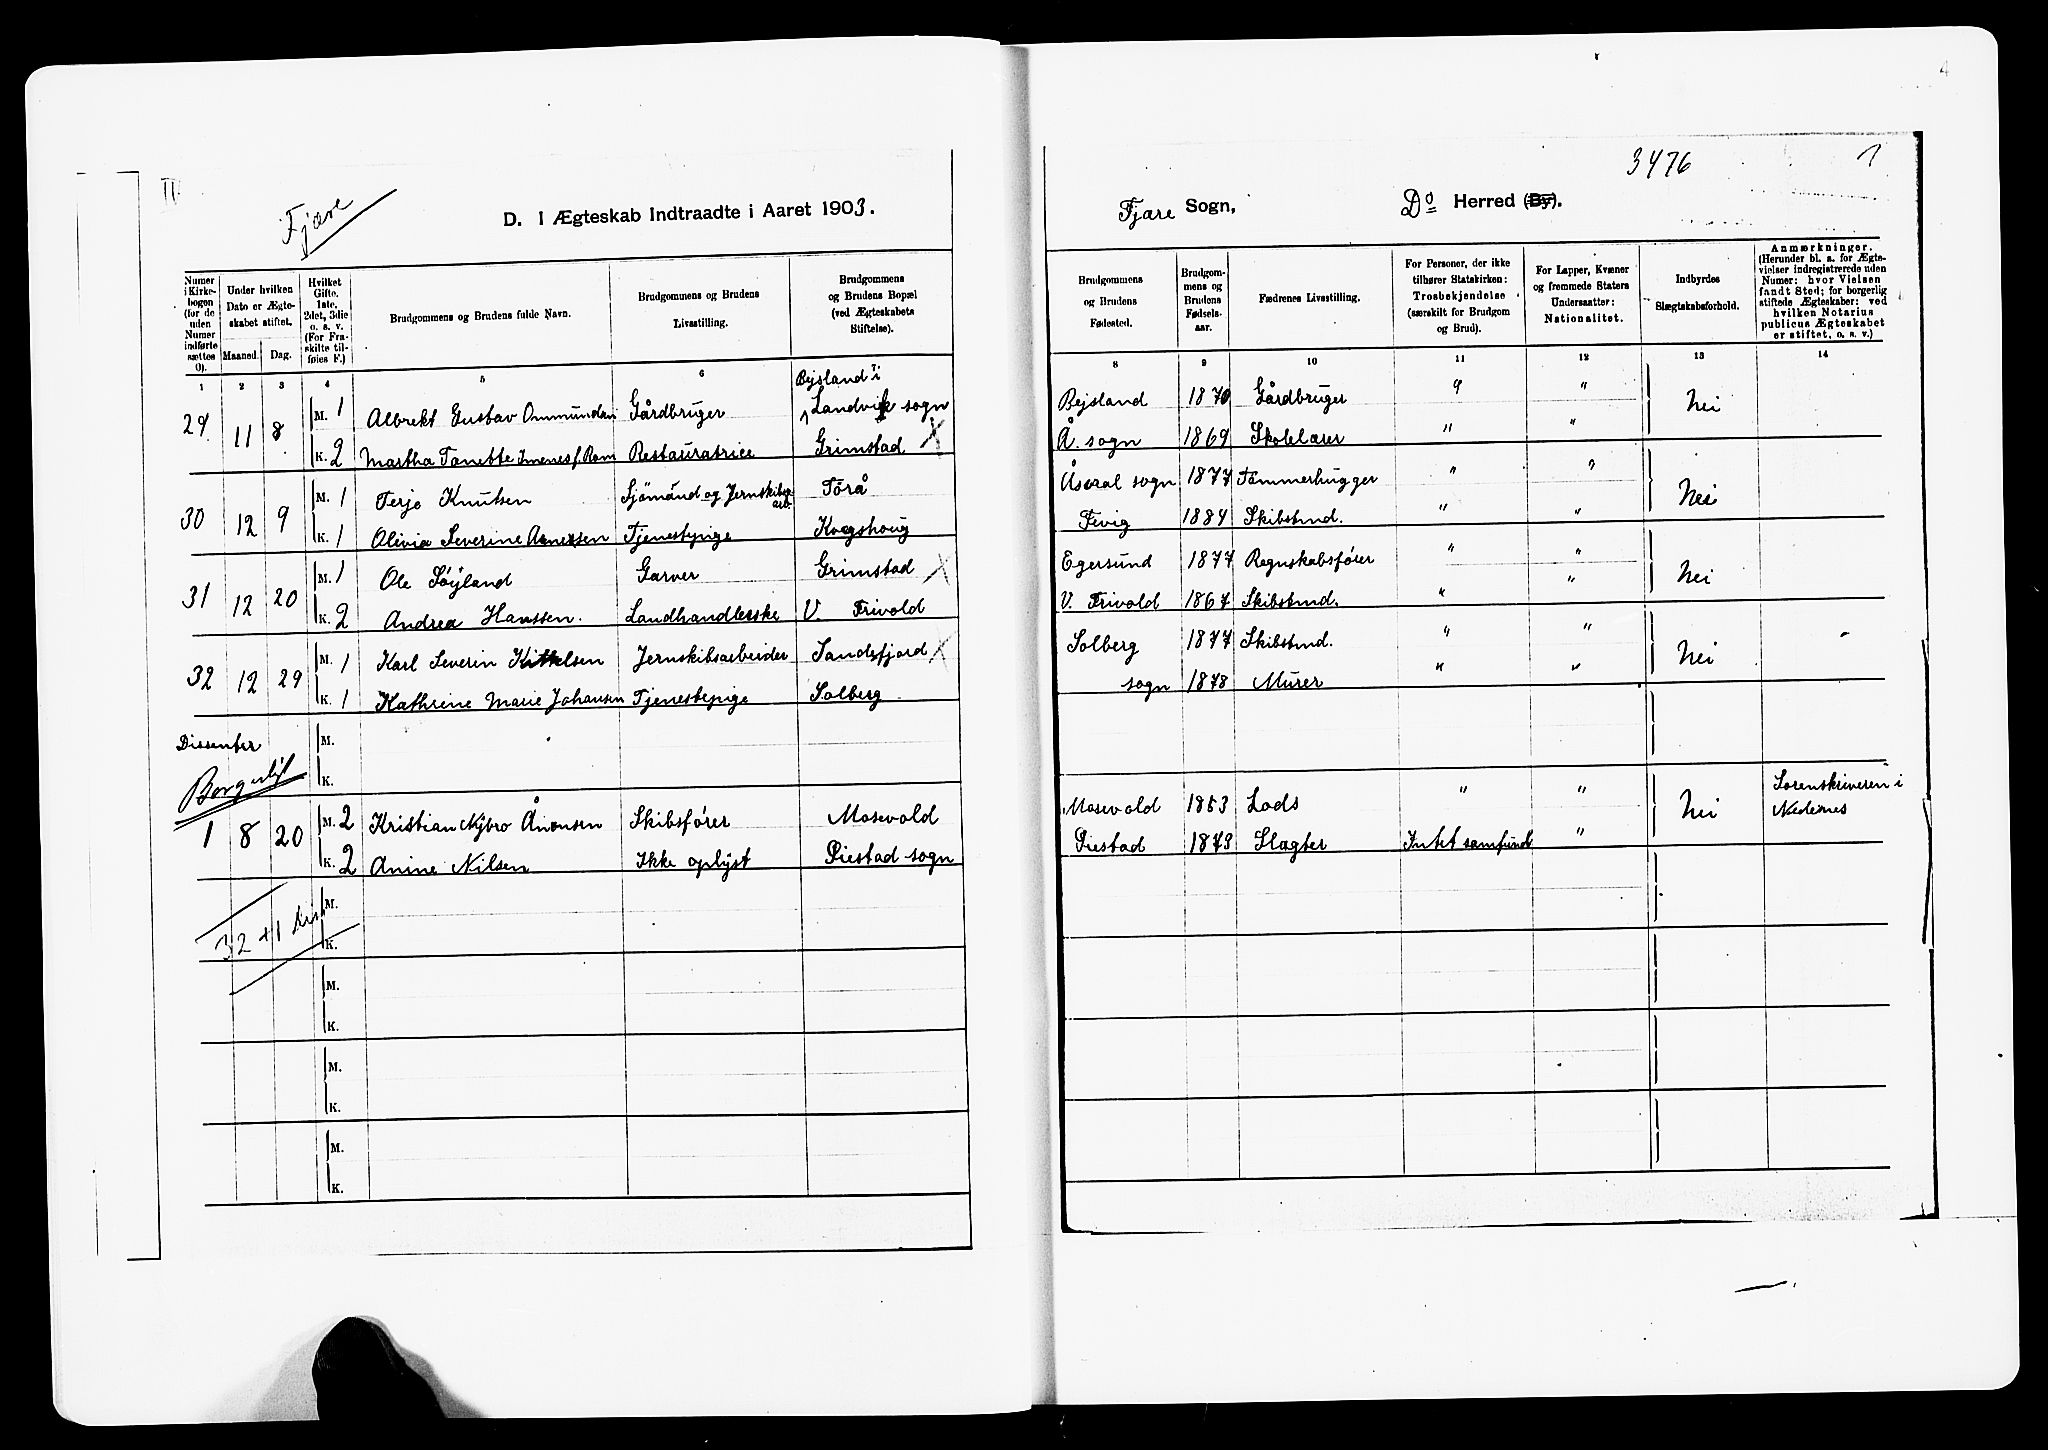 4
3476
1
II
Fjære
D. I Ægteskab Indtraadte i Aaret 1903.
Fjære Sogn, Do Herred (By).
Numer i Kirkebogen (for de uden Numer indførte sættes 0).
Under hvilken Dato er Ægteskabet stiftet.
Maaned. Dag.
Hvilket Gifte, 1ste, 2det, 3die o. s. v. (For Fraskilte tilføies F.)
Brudgommens og Brudens fulde Navn.
Brudgommens og Brudens Livsstilling.
Brudgommens og Brudens Bopæl (ved Ægteskabets Stiftelse).
Brudgommens og Brudens Fødested.
Brudgommens og Brudens Fødselsaar.
Fædrenes Livsstilling.
For Personer, der ikke tilhører Statskirken: Trosbekjendelse (særskilt for Brudgom og Brud).
For Lapper, Kvæner og fremmede Staters Undersaatter: Nationalitet.
Indbyrdes Slægtskabsforhold.
Anmærkninger. (Herunder bl. a. for Ægtevielser indregistrerede uden Numer: hvor Vielsen fandt Sted; for borgerlig stiftede Ægteskaber: ved hvilken Notarius publicus Ægteskabet er stiftet, o. s. v.)
1 2 3 4 5 6 7 8 9 10 11 12 13 14
29 11 8 M. 1 Albrekt Gustav Ommundsen Gårdbruger Bejsland i Landvik sogn Bejsland 1870 Gårdbruger " " Nei
K. 2 Martha Tanette Imenes f. Ram Restauratrice Grimstad X Å. sogn 1869 Skolelærer " "
30 12 9 M. 1 Terje Knutsen Sjömand og Jernskibsarb. Törå Åseral sogn 1877 Tømmerhugger " " Nei
K. 1 Olivia Severine Tjenestepige Fevig 1884 Skibstmd. " "
31 12 20 M. 1 Ole Söyland Garver Grimstad X Egersund 1877 Regnskabsfører " " Nei
K. 2 Andrea Hanssen. Landhandlerske V. Frivold V. Frivold 1867 Skibstmd. " "
32 12 29 M. 1 Karl Severin Kittelsen Jernskibsarbeider Sandefjord X Solberg 1877 Skibstmd. " " Nei
K. 1 Kathrine Marie Johansen Tjenestepige Solberg sogn 1878 Murer " "
Dissenter M.
Borgerligt K.
1 8 20 M. 2 Kristian Nybro Skibsfører Mosevold Mosevold 1853 Lods " " Nei Sorenskriveren i Nedenes
K. 2 Anine Nilsen Ikke oplyst sogn 1873 Slagter Intet samfund "
32 + 1 M.
K.
M.
K.
M.
K.
M.
K.